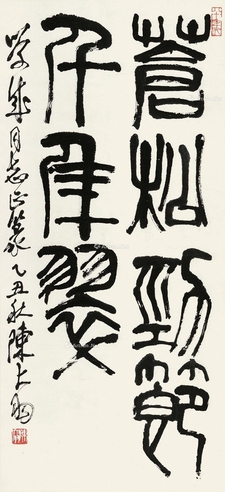 蒼松勁節
千年翠
學威同志正篆 乙丑秋 陳大羽